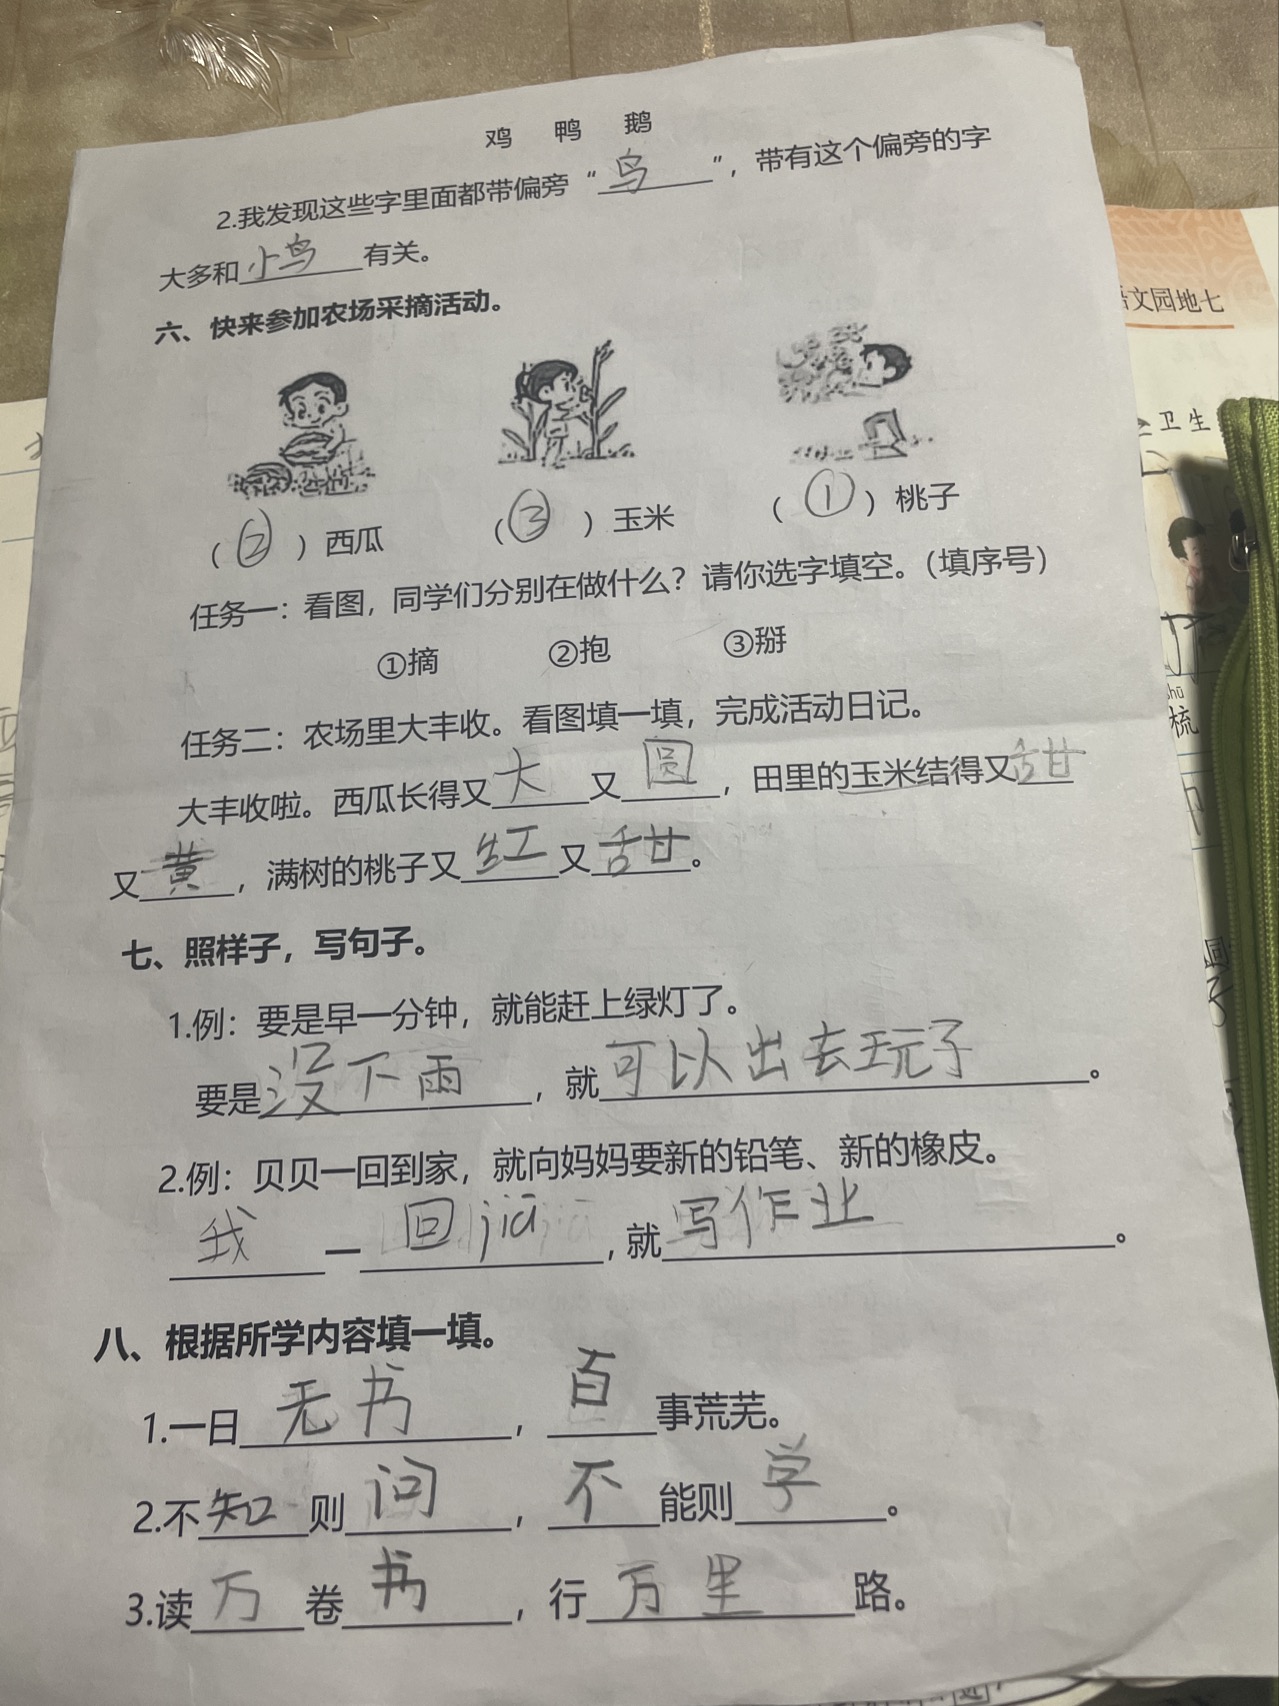 鸡 鸭 鹅
2.我发现这些字里面都带偏旁“鸟”，带有这个偏旁的字
大多和小鸟有关。
六、快来参加农场采摘活动。
（②）西瓜 （③）玉米 （①）桃子
任务一：看图，同学们分别在做什么？请你选字填空。（填序号）
①摘 ②抱 ③掰
任务二：农场里大丰收。看图填一填，完成活动日记。
大丰收啦。西瓜长得又大又圆，田里的玉米结得又甜
又黄，满树的桃子又红又甜。
七、照样子，写句子。
1.例：要是早一分钟，就能赶上绿灯了。
要是没下雨，就可以出去玩了。
2.例：贝贝一回到家，就向妈妈要新的铅笔、新的橡皮。
我一回jiā，就写作业。
八、根据所学内容填一填。
1.一日无书，百事荒芜。
2.不知则问，不能则学。
3.读万卷书，行万里路。
语文园地七
卫生
梳